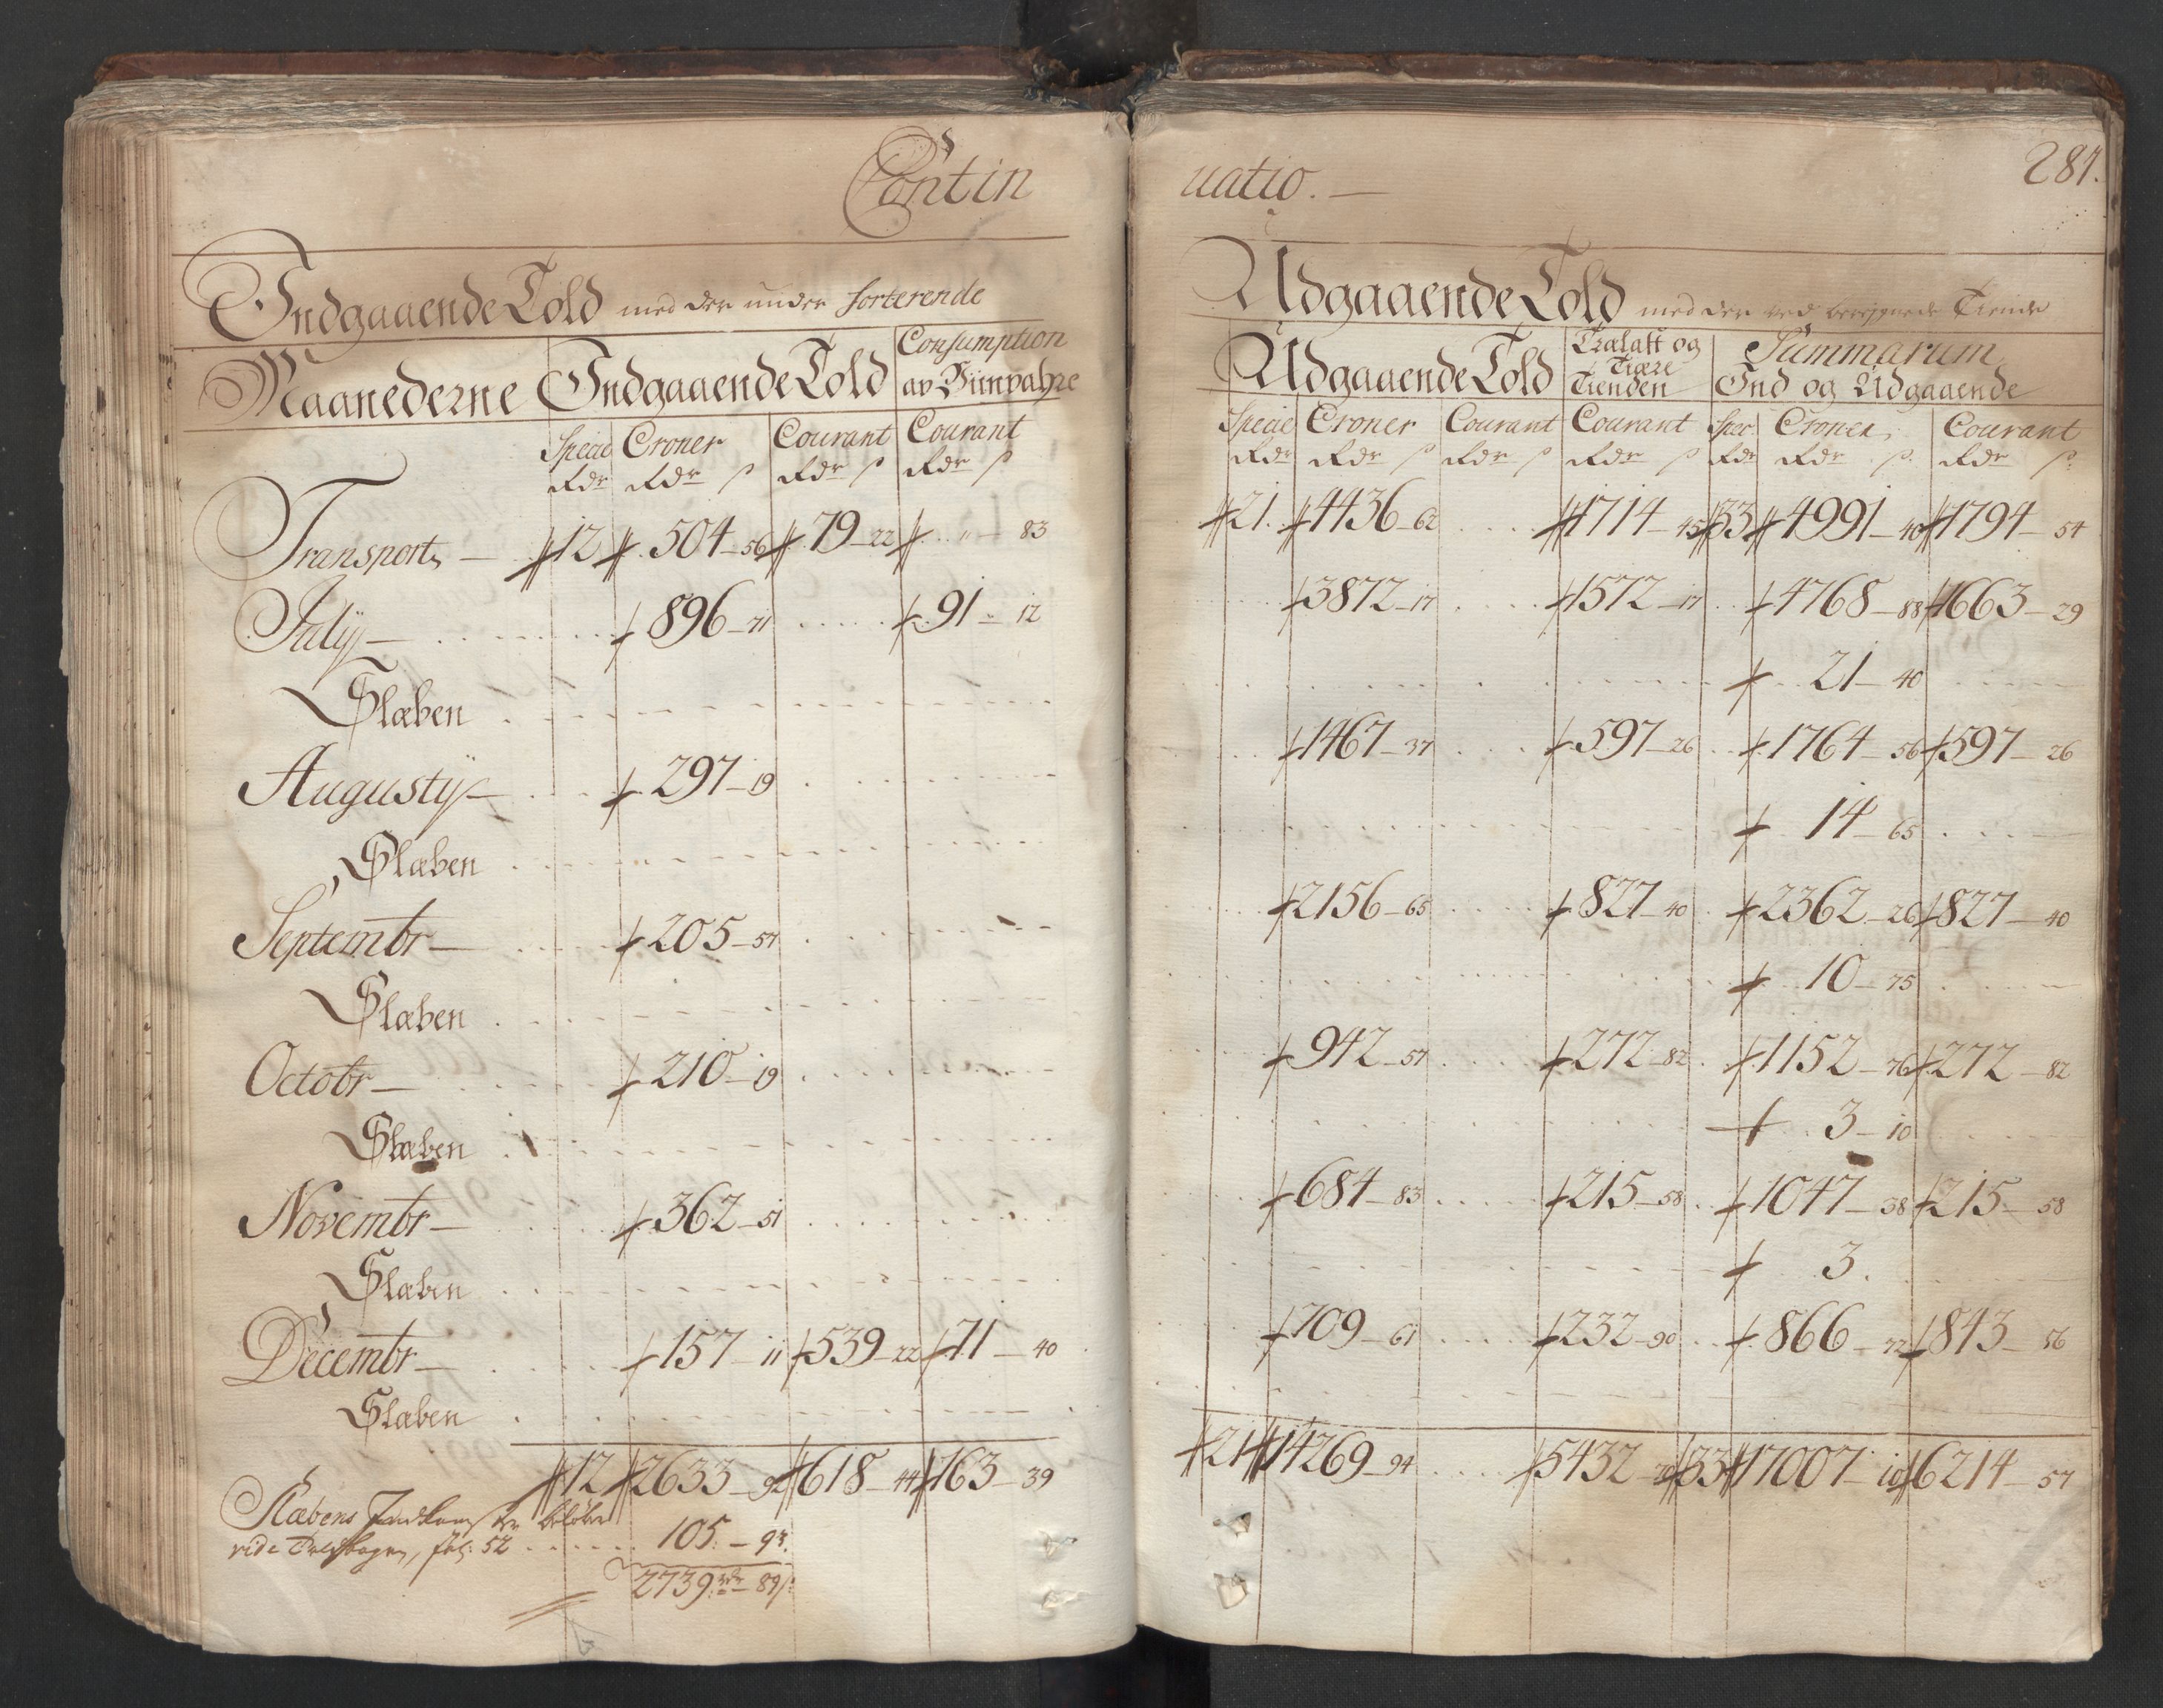 Contin
Indgaaende Told med der under sorterende
Maanederne Indgaaende Told Consumption
Specie Croner Courant Courant
Rdr Rdr ß Rdr ß Rdr ß
Transport — 12 504 – 56 79 – 22 " – 83
July — 896 – 71 91 – 12
Slæben
Augusty — 297 – 19
Slæben
Septembr — 205 – 57
Slæben
Octobr — 210 – 19
Slæben
Novembr — 362 – 51
Slæben
Decembr — 157 – 11 539 – 22 71 – 40
Slæben
12 2633 – 92 618 – 44 163 – 39
Slæbens
vide fol: 52 105. – 93.
2739 rdr 89 ß
uatio. —
287.
Udgaaende Told med der ved Tiende
Udgaaende Told Trælast og Tiære Tienden Summarum Ind og Udgaaende
Specie Croner Courant Courant Spec. Croner Courant
Rdr Rdr ß Rdr ß Rdr ß Rdr Rdr ß Rdr ß
21. 4436 – 62 1714 – 45 33 4991 – 40 1794 – 54
3872 – 17 1572 – 17 4768 – 88 1663 – 29
21 – 40
1467 – 37 597 – 26 1764 – 56 597 – 26
14 – 65
2156 – 65 827 – 40 2362 – 26 827 – 40
10 – 75
942 – 57 272 – 82 1152 – 76 272 – 82
3 – 10
684 – 83 215 – 58 1047 – 38 215 – 58
3.
709 – 61 232 – 90 866 – 72 843 – 56
21 14269 – 94 5432 – 70 33 17007 – 10 6214 – 57